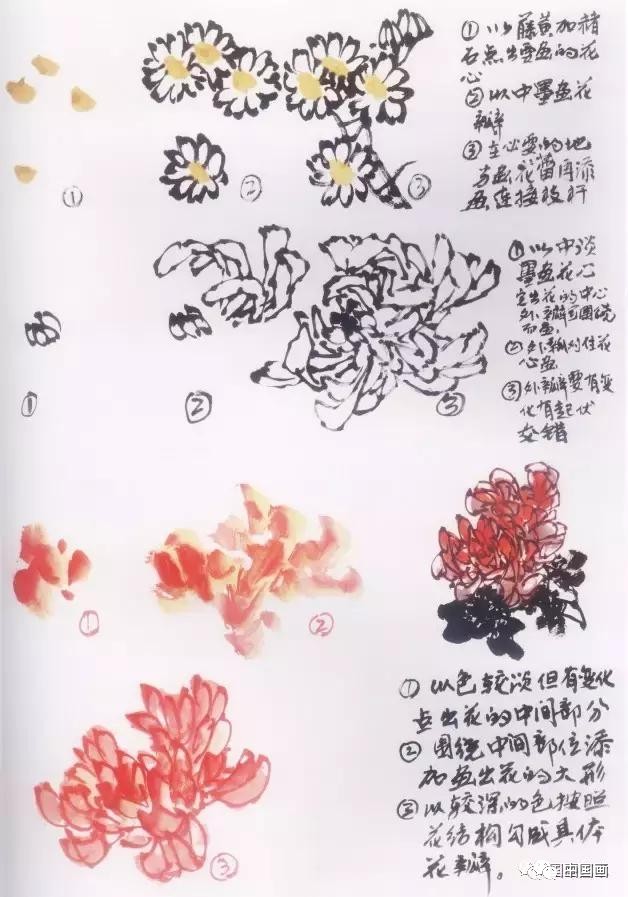 ① 以藤黄加赭
石点出要画的花
心
② 以中墨画花
瓣
③ 在必要的地
方画花蕾再添
画连接枝杆
① ② ③
① 以中淡
墨画花心
定出花的中心
外瓣可围绕
而画。
② 外瓣对住花
心画
③ 外瓣要有变
化有起伏
交错
① ② ③
① ②
① 以色较淡但有变化
点出花的中间部分
② 围绕中间部位添
加画出花的大形
③ 以较深的色按照
花结构勾成具体
花瓣。
③